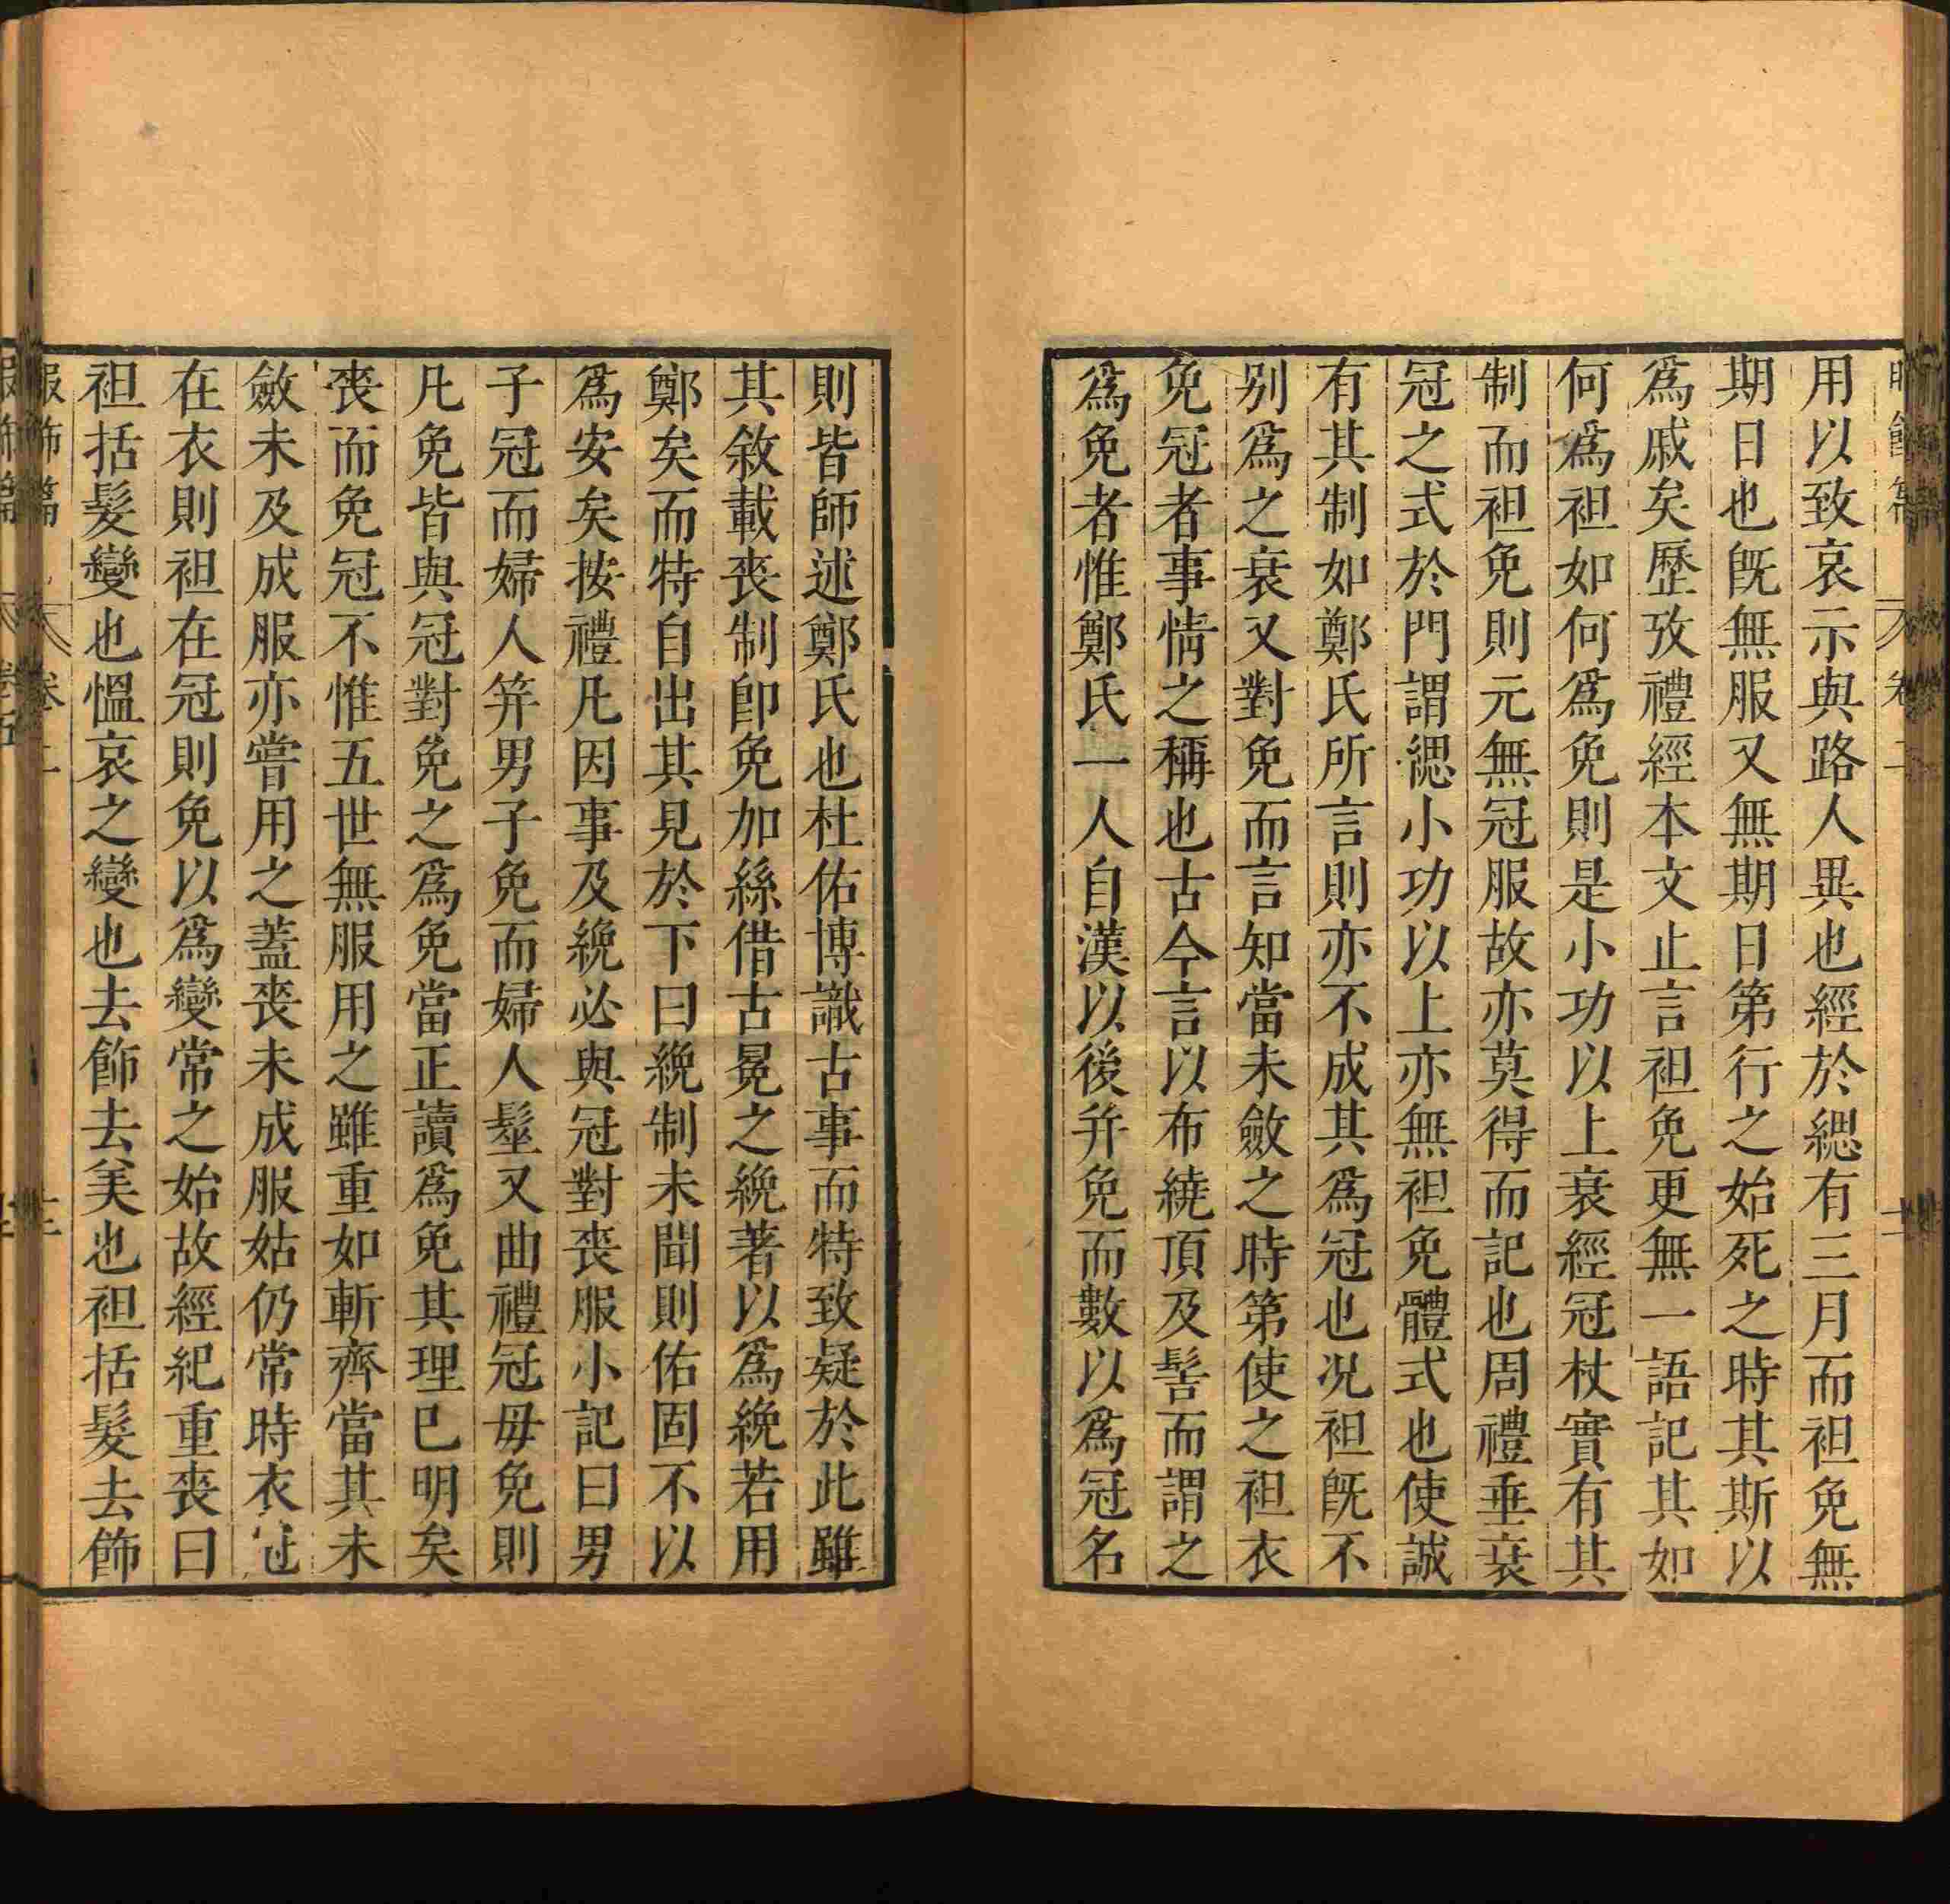 用以致哀示與路人異也經於緦有三月而袒免無
期日也旣無服又無期日第行之始死之時其斯以
爲戚矣歷攷禮經本文止言袒免更無一語記其如
何爲袒如何爲免則是小功以上衰絰冠杖實有其
制而袒免則元無冠服故亦莫得而記也周禮垂衰
冠之式於門謂緦小功以上亦無袒免體式也使誠
有其制如鄭氏所言則亦不成其爲冠也况袒旣不
别爲之衰又對免而言知當未斂之時第使之袒衣
免冠者事情之稱也古今言以布繞頂及髻而謂之
爲免者惟鄭氏一人自漢以後并免而數以爲冠名
則皆師述鄭氏也杜佑博識古事而特致疑於此雖
其敘載喪制卽免加絲借古冕之絻著以爲絻若用
鄭矣而特自出其見於下曰絻制未聞則佑固不以
爲安矣按禮凡因事及絻必與冠對喪服小記曰男
子冠而婦人笄男子免而婦人髽又曲禮冠毋免則
凡免皆與冠對免之爲免當正讀爲免其理巳明矣
喪而免冠不惟五世無服用之雖重如斬齊當其未
斂未及成服亦嘗用之蓋喪未成服姑仍常時衣冠
在衣則袒在冠則免以爲變常之始故經紀重喪曰
袒括髮變也慍哀之變也去飾去美也袒括髮去飾
服飾篇 卷二